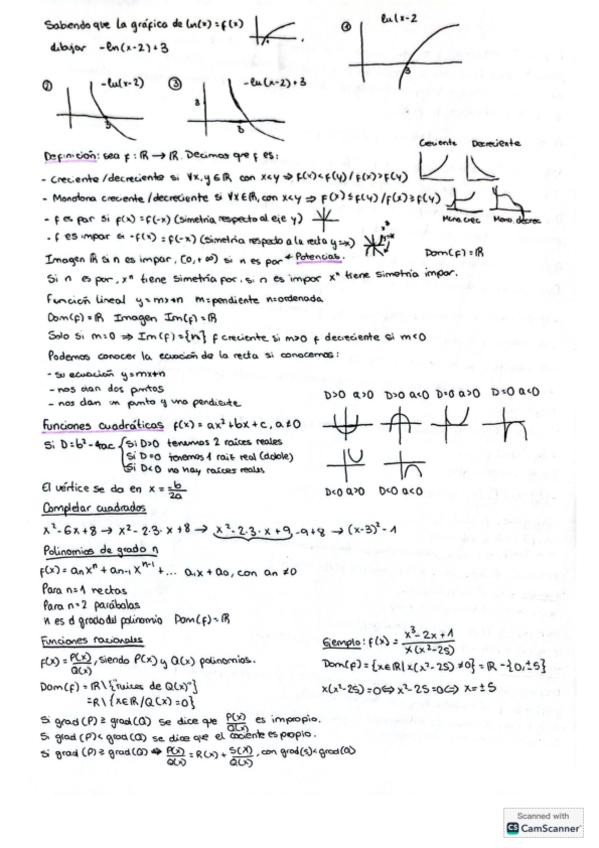 Sabiendo que la gráfica de ln(x)=f(x)
dibujar -ln(x-2)+3
① ln(x-2
3
② -ln(x-2)
3
③ -ln(x-2)+3
3
Definición: sea f: ℝ → ℝ. Decimos que f es:
Creciente Decreciente
- Creciente/decreciente si ∀x,y∈ℝ con x<y ⇒ f(x)<f(y)/f(x)>f(y)
- Monotona creciente/decreciente si ∀x∈ℝ, con x<y ⇒ f(x)≤f(y)/f(x)≥f(y)
Mono crec Mono. decrec
- f es par si f(x)=f(-x) (simetría respecto al eje y)
- f es impar si -f(x)=f(-x) (simetría respecto a la recta y=x)
Imagen ℝ si n es impar, [0,+∞) si n es par * Potencias. Dom(f)=ℝ
Si n es par, xⁿ tiene simetría par, si n es impar xⁿ tiene simetría impar.
Función lineal y=mx+n m=pendiente n=ordenada
Dom(f)=ℝ Imagen Im(f)=ℝ
Solo si m=0 ⇒ Im(f)={n} f creciente si m>0 f decreciente si m<0
Podemos conocer la ecuación de la recta si conocemos:
- su ecuación y=mx+n
- nos dan dos puntos
- nos dan un punto y una pendiente
D>0 a>0 D>0 a<0 D=0 a>0 D=0 a<0
Funciones cuadráticas f(x)=ax²+bx+c, a≠0
Si D=b²-4ac { Si D>0 tenemos 2 raíces reales
Si D=0 tenemos 1 raíz real (doble)
Si D<0 no hay raíces reales
D<0 a>0 D<0 a<0
El vértice se da en x = -b/2a
Completar cuadrados
x²-6x+8 → x²-2·3·x+8 → x²-2·3·x+9-9+8 → (x-3)²-1
Polinomios de grado n
f(x)=aₙxⁿ+aₙ₋₁xⁿ⁻¹+... a₁x+a₀, con an≠0
Para n=1 rectas
Para n=2 parábolas
n es el grado del polinomio Dom(f)=ℝ
Funciones racionales
f(x)=P(x)/Q(x), siendo P(x) y Q(x) polinomios.
Dom(f)=ℝ\{"raíces de Q(x)"}
=ℝ\{x∈ℝ/Q(x)=0}
Ejemplo: f(x)= x³-2x+1/x(x²-25)
Dom(f)={x∈ℝ|x(x²-25)≠0}=ℝ-{0,±5}
x(x²-25)=0⇔x²-25=0⇔x=±5
Si grad(P)≥grad(Q) se dice que P(x)/Q(x) es impropio.
Si grad(P)<grad(Q) se dice que el cociente es propio.
Si grad(P)≥grad(Q) ⇒ P(x)/Q(x)=R(x)+S(x)/Q(x), con grad(s)<grad(Q)
Scanned with
CS CamScanner